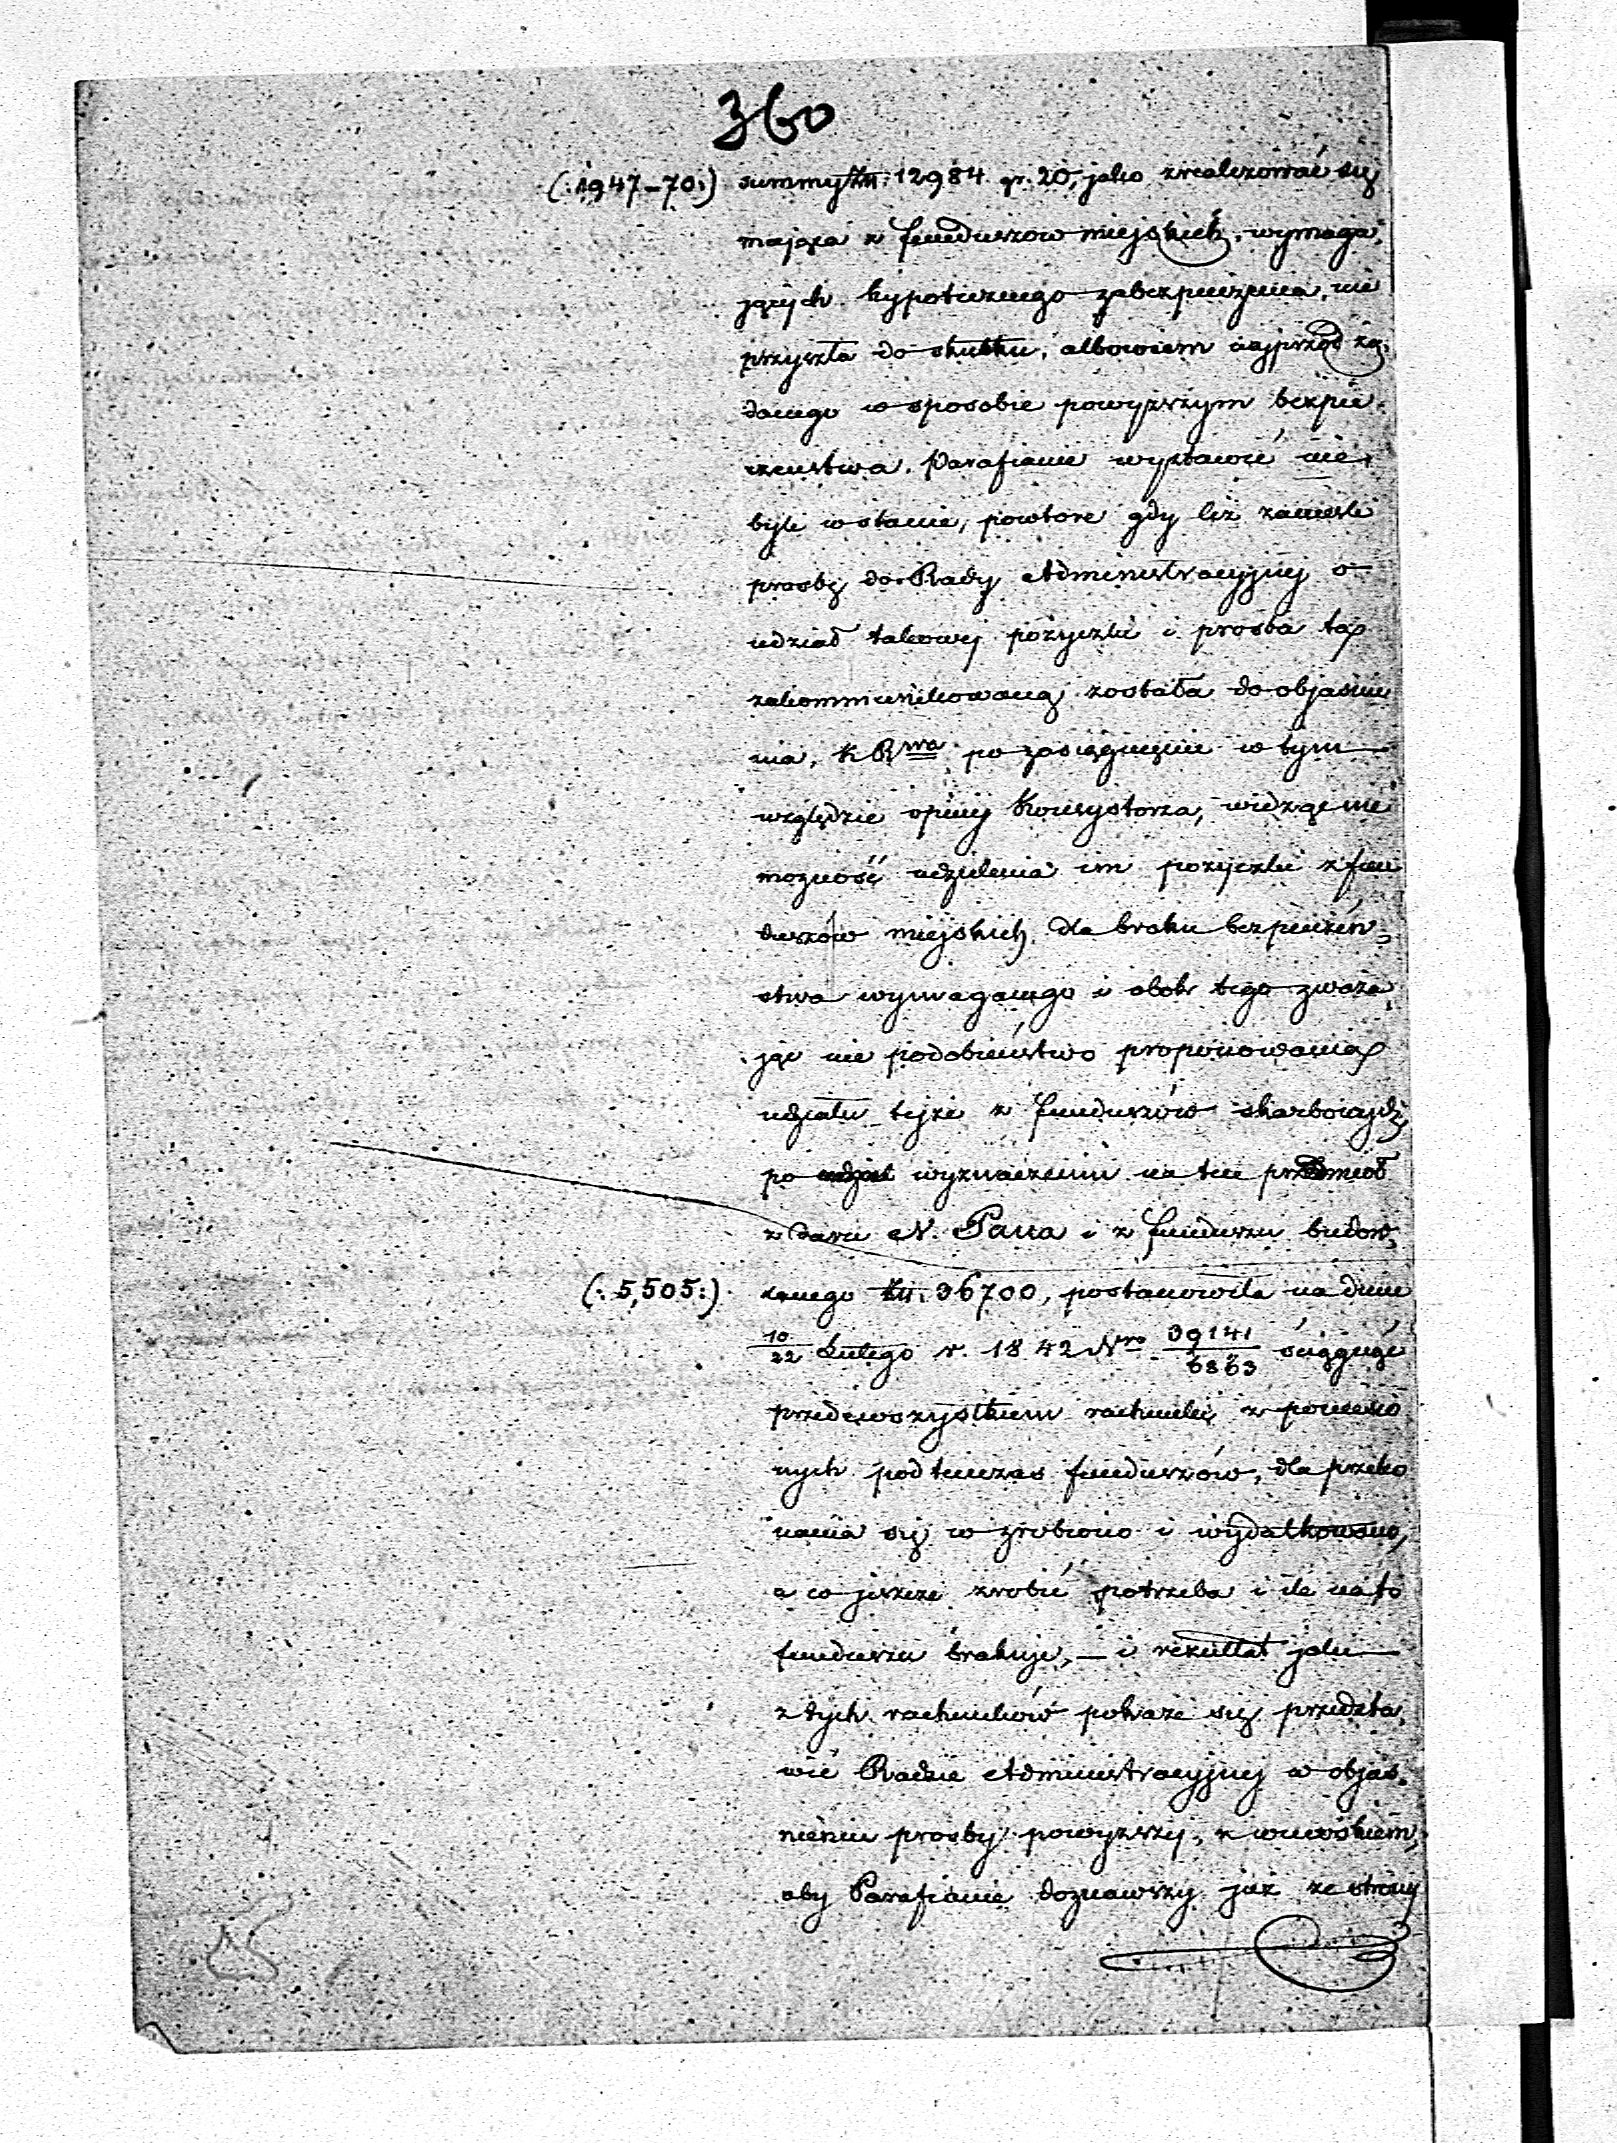 360
(:1947-70:) summy Złt: 12984 gr. 20, jako zrealizować się
mająca z funduszow miejskich, wymaga,
jących hypotecznego zabezpieczenia, nie
przyszła do skutku, albowiem najprzód żą,
danego w sposobie powyższym bezpie,
czeństwa Parafianie wystawić nie
byli w stanie, powtore gdy też zanieśli
prosbę do Rady Administracyjnej o
udział takowej pożyczki i prosba ta
zakommunikowaną została do objaśnie
nia, K R wa po zasiągnięciu w tym
względzie opinij Konsystorza, widząc nie
możność udzielenia im pożyczki z fun
duszów miejskich dla braku bezpieczeń,
stwa wymaganego i obok tego zważa,
jąc nie podobieństwo proponowania
udziału tejże z funduszów skarbowych
po wyznaczeniu na ten przedmiot
z daru N. Pana i z funduszu budow,
(:5,505:) lanego Złt. 36700, postanowiła na dniu
10/22 Lutego r. 1842 Nro 39141/6863 ściągnąć
przedewszystkiem rachunki z poniesio
nych podtenczas funduszów, dla przeko
nania się co zrobiono i wydatkowano,
a co jeszcze zrobić potrzeba i ile na to
funduszu brakuje, — i rezultat jaki
z tych rachunków pokaże się przedsta,
wić Radzie Administracyjnej w objaś,
nieniu prosby powyższej, z wnioskiem,
aby Parafianie doznawszy już ze strony